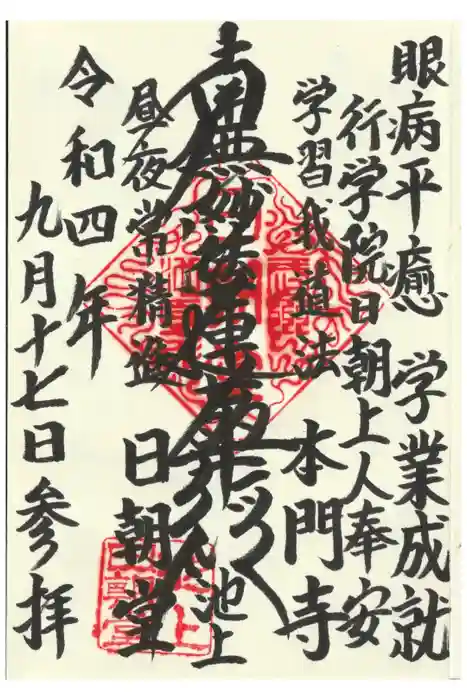 眼病平癒 学業成就
行学院日朝上人奉安
学習我道法
本門寺
南無妙法蓮華経
池上
昼夜常精進
日朝堂
令和四年
九月十七日参拝